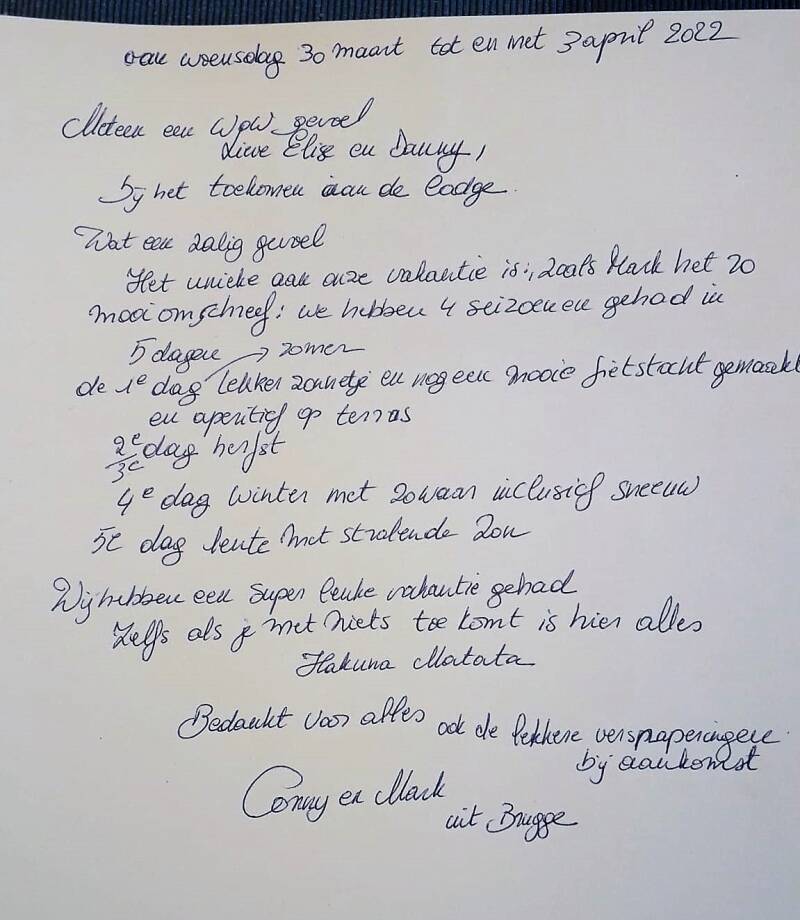 van woensdag 30 maart tot en met 3 april 2022
Meteen een WOW gevoel
Lieve Elise en Danny,
bij het toekomen aan de lodge.
Wat een zalig gevoel
Het unieke aan onze vakantie is:, zoals Mark het zo
mooi omschreef: we hebben 4 seizoenen gehad in
5 dagen → zomer
de 1e dag lekker zonnetje en nog een mooie fietstocht gemaakt
en aperitief op terras
2e dag herfst
3e
4e dag winter met zowaar inclusief sneeuw
5e dag lente met stralende zon
Wij hebben een super leuke vakantie gehad
Zelfs als je met niets toe komt is hier alles
Hakuna Matata
Bedankt voor alles ook de lekkere versnaperingen
bij aankomst
Conny en Mark
uit Brugge